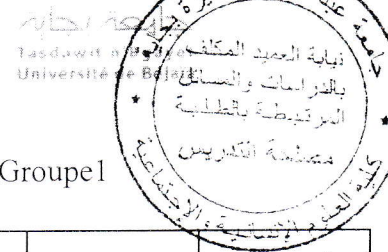 جامعة بجاية
Tasdawit n Bgayet
Université de Béjaïa
جامعة
نيابة العميد المكلفة
بالدراسات والمسائل
المرتبطة بالطلبة
مصلحة التدريس
كلية العلوم الإنسانية والإجتماعية
Groupe1